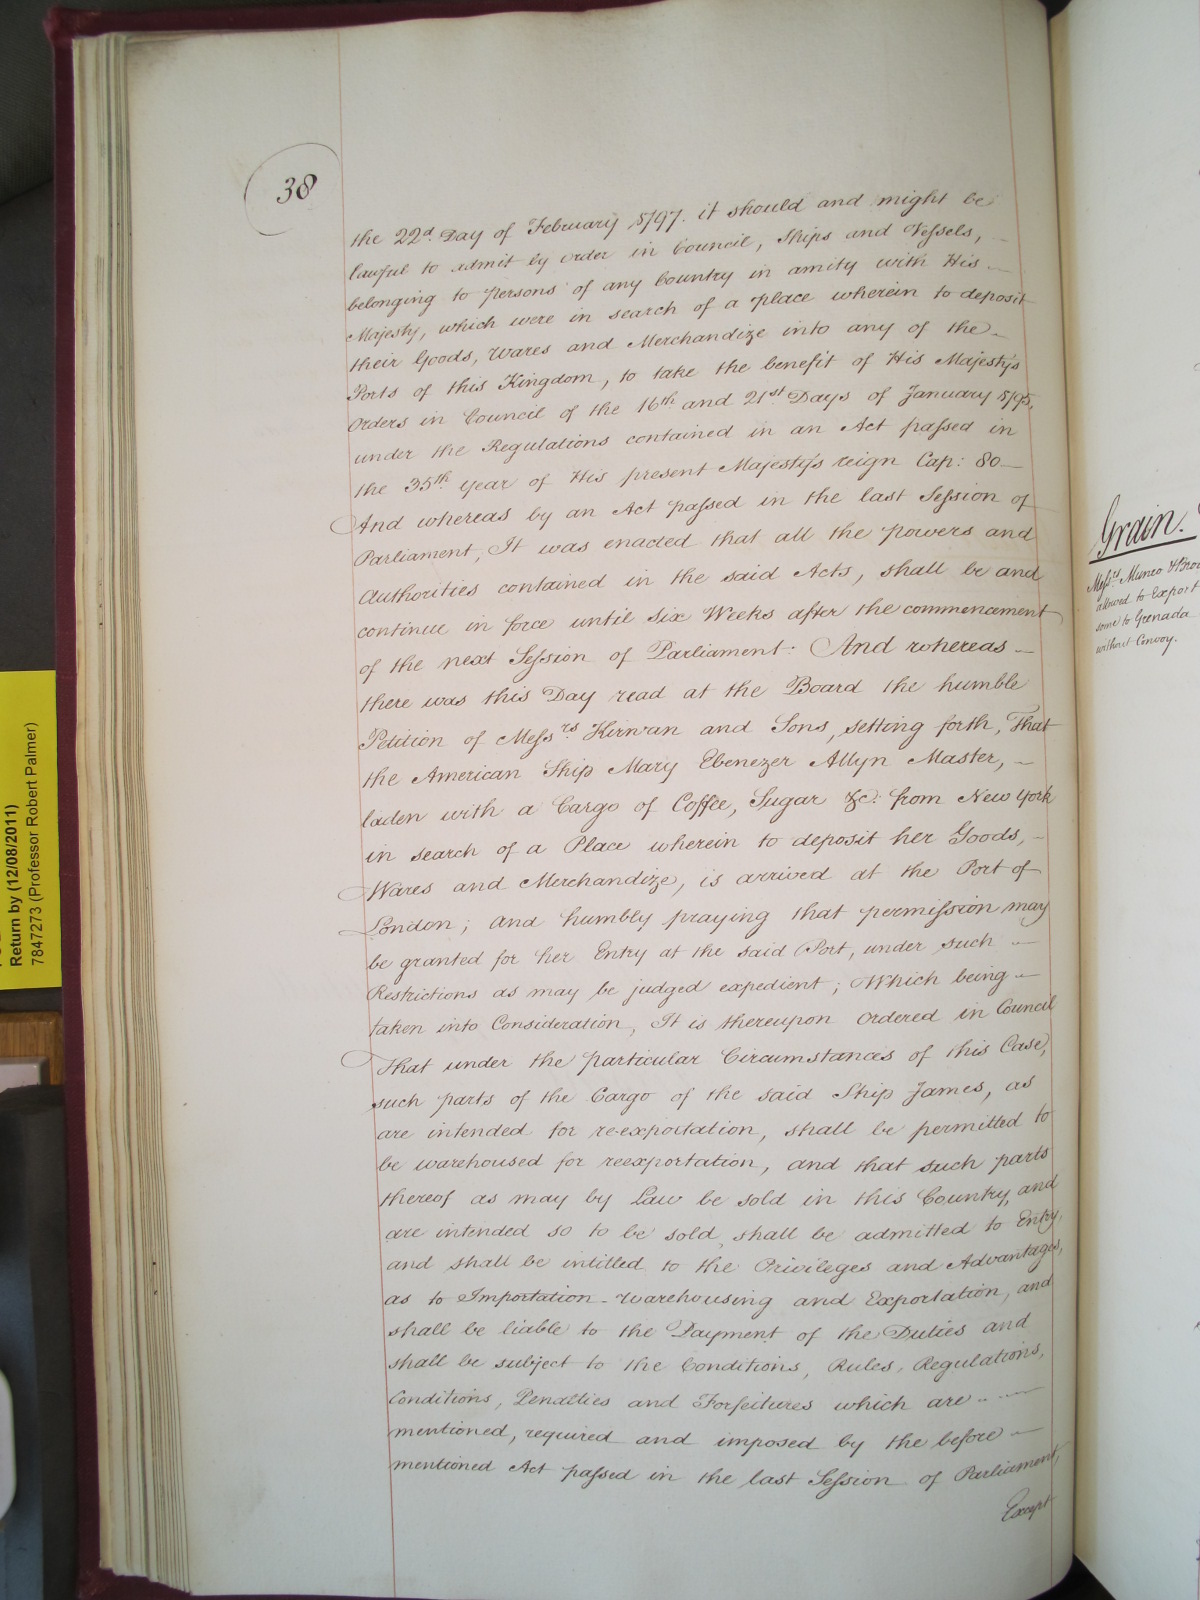 38
the 22d. Day of February 1797. it should and might be
lawful to admit by order in Council, Ships and Vessels, –
belonging to Persons of any Country in amity with His –
Majesty, which were in search of a place wherein to deposit
their Goods, Wares and Merchandize into any of the –
Ports of this Kingdom, to take the benefit of His Majesty's
Orders in Council of the 16th and 21st Days of January 1795,
under the Regulations contained in an Act passed in
the 35th. year of His present Majesty's reign Cap: 80 –
And whereas by an Act passed in the last Session of
Parliament, It was enacted that all the powers and
Authorities contained in the said Acts, shall be and
continue in force until six Weeks after the commencement
of the next Session of Parliament. And whereas –
there was this Day read at the Board the humble
Petition of Messrs. Kirwan and Sons, setting forth, That
the American Ship Mary Ebenezer Allyn Master, –
laden with a Cargo of Coffee, Sugar &c: from New York
in search of a Place wherein to deposit her Goods, –
Wares and Merchandize, is arrived at the Port of
London; and humbly praying that permission may
be granted for her Entry at the said Port, under such –
Restrictions as may be judged expedient; Which being –
taken into Consideration, It is thereupon Ordered in Council
That under the particular Circumstances of this Case,
such parts of the Cargo of the said Ship James, as
are intended for re-exportation, shall be permitted to
be warehoused for reexportation, and that such parts
thereof as may by Law be sold in this Country, and
are intended so to be sold, shall be admitted to Entry,
and shall be intitled to the Privileges and Advantages,
as to Importation - warehousing and Exportation, and
shall be liable to the Payment of the Duties and
shall be subject to the Conditions, Rules, Regulations,
Conditions, Penalties and Forfeitures which are –
mentioned, required and imposed by the before –
mentioned Act passed in the last Session of Parliament,
Except
Grain.
Messrs. Munro & Bro
allowed to Export
some to Grenada
without Convoy.
Return by (12/08/2011)
7847273 (Professor Robert Palmer)